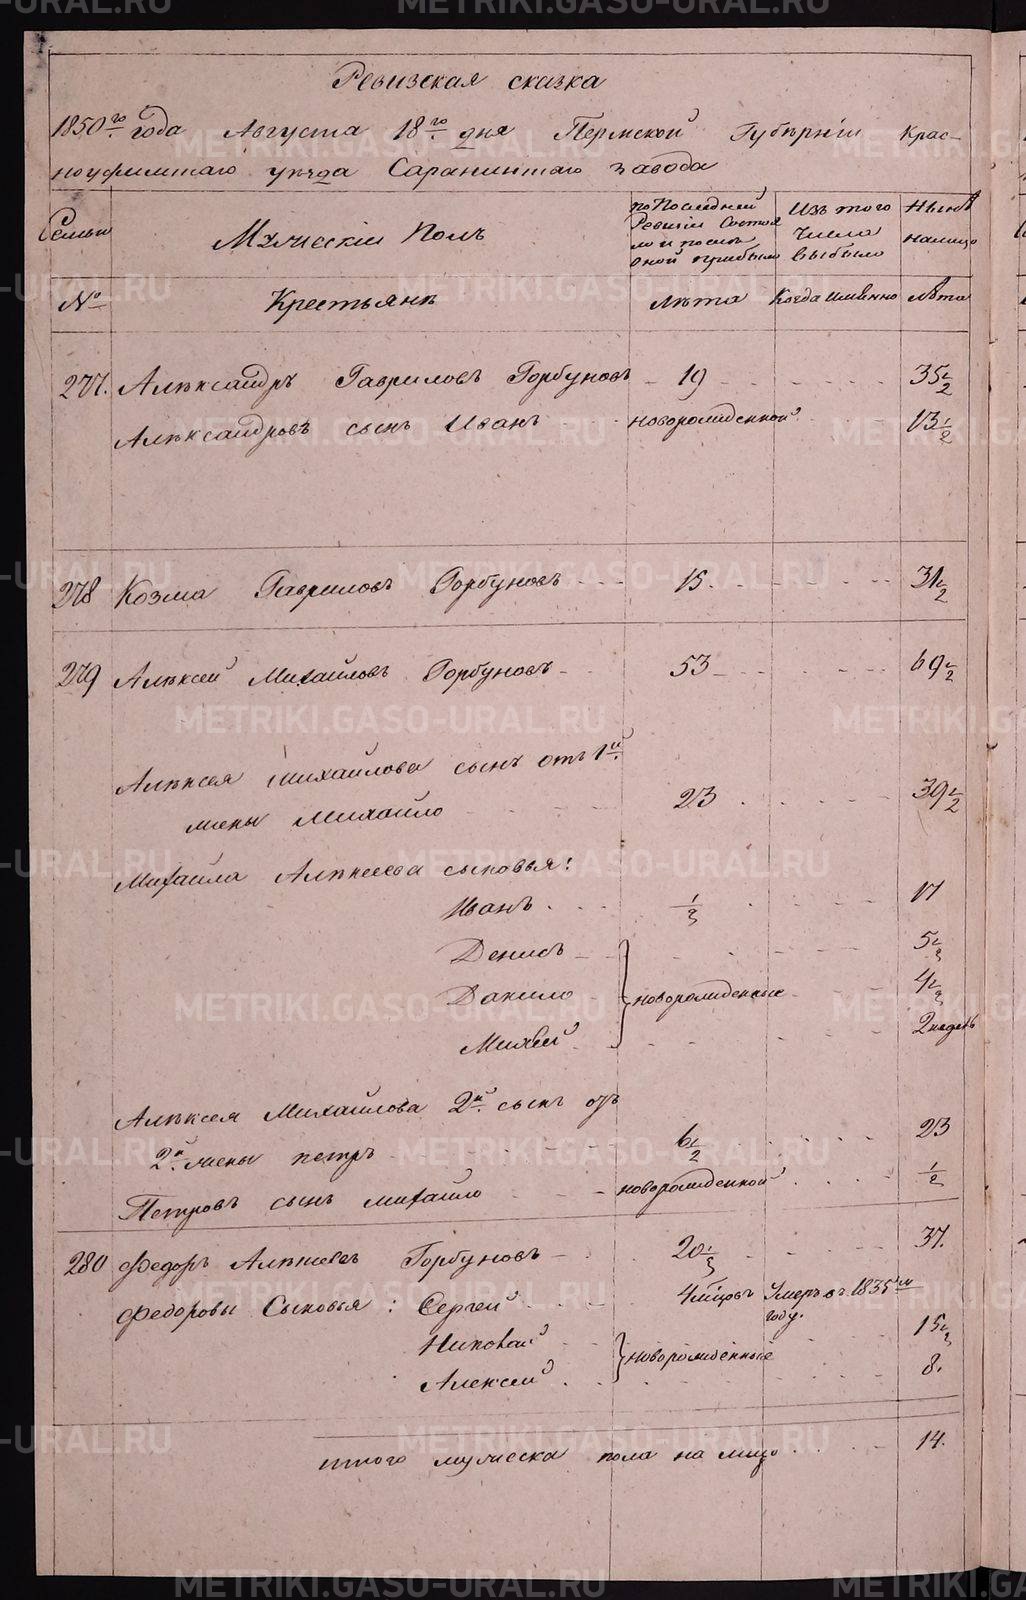 Ревизская сказка
1850го года Августа 18го дня Пермской Губерніи Крас-
ноуфимскаго уезда Саранинскаго завода
Семьи
Мужескій Полъ
по Последней Ревизіи Состоя ло и после оной прибыло
Изъ того Числа выбыло
Ныне налицо
№
Крестьяне
Лѣта
Когда именно
Лѣта
277. Алѣксандръ Гавриловъ Горбуновъ 19 35 1/2
Алѣксандровъ сынъ Иванъ новорожденной 13 1/2
278 Козма Гавриловъ Горбуновъ 15. 31 1/2
279 Алѣксей Михайловъ Горбуновъ 53 69 1/2
Алѣксея Михайлова сынъ отъ 1й
жены Михайло 23 39 1/2
Михайла Алѣксеева сыновья:
Иванъ 1/2 17
Денисъ 5 1/2
Данило новорожденные 4 1/2
2 недель
Алѣксея Михайлова 2й сынъ отъ
2й жены петръ 6 1/2 23
Петровъ сынъ михайло новорожденной 1/2
280 Федоръ Алѣксеевъ Горбуновъ 20 1/2 37.
Федоровы Сыновья: Сергей Умеръ въ 1835м году.
Николай новорожденные 15 1/2
Алексей 8.
итого мужеска пола на лицо 14.
METRIKI.GASO-URAL.RU